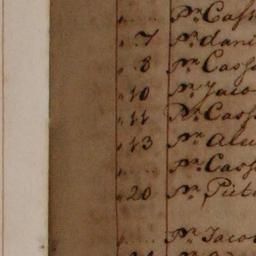 .... Pr. Cass
" 7 Pr. dani
" 8 Pr. Casso
" 10 Pr. Jaco
" 11 Pr. Cass
" 13 Pr.
.... Pr. Casso
" 20 Pr. Piet
.... Pr. Jaco